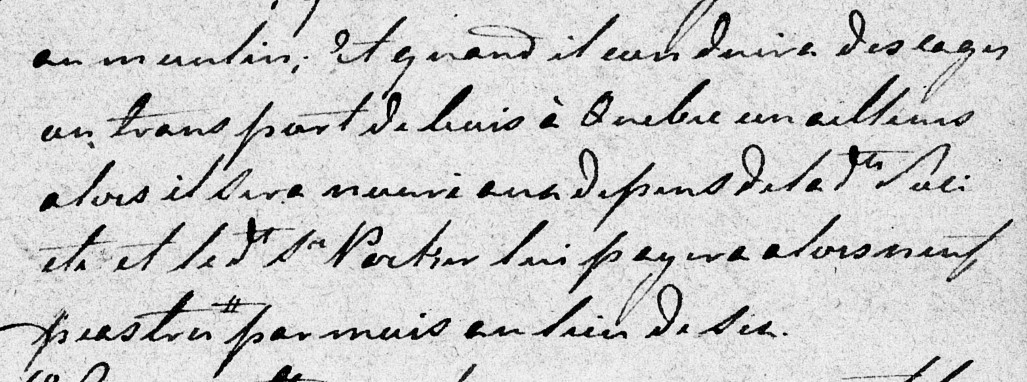 au moulin; Et quand il conduira des cages
ou transport de bois à Quebec ou ailleurs
alors il sera nouri aux depens de lad.te Soci
ete et led.t S.r payera alors neuf
piastres par mois au lieu de six.